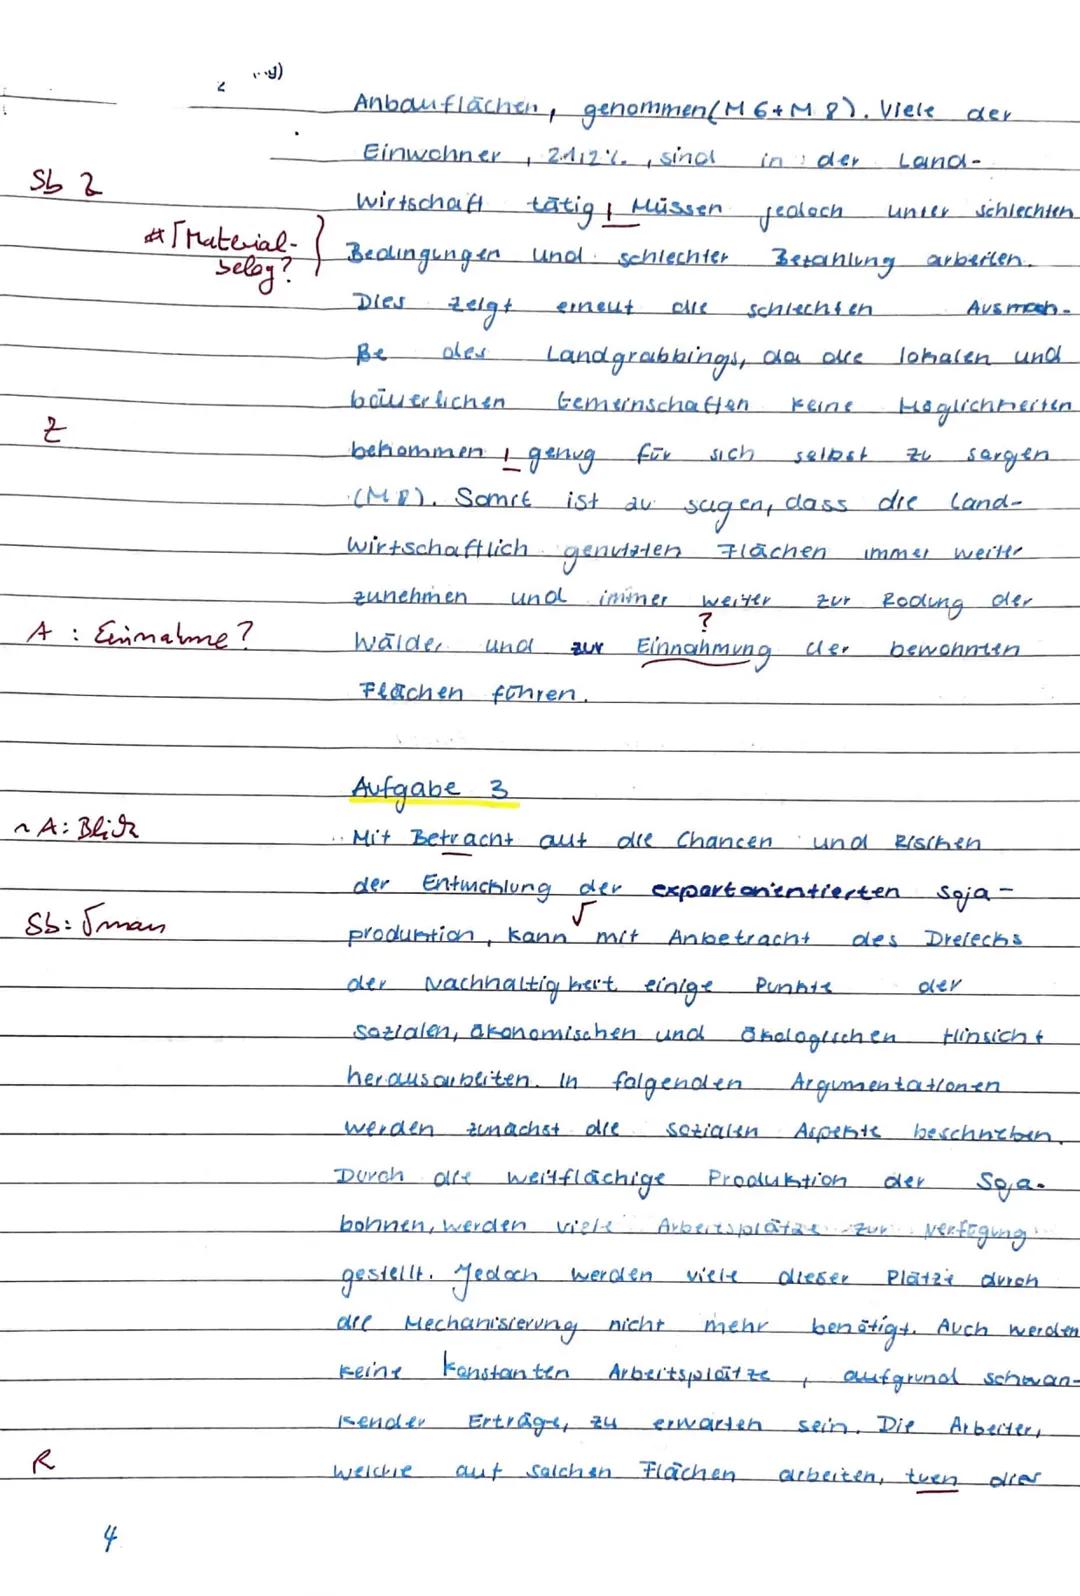 Anbauflächen, genommen (M6+M8). Viele der
Einwohner, 21,2%, sind in der Land-
Sb 2
wirtschaft tätig, Müssen jedoch unter schlechten
# Γ Material-
beleg?
Bedingungen und schlechter Bezahlung arbeiten.
Dies zeigt erneut die schlechten Ausmaa-
ße des Landgrabbings, da die lokalen und
bäuerlichen Gemeinschaften keine Möglichkeiten
Z
bekommen, genug für sich selbst zu sorgen
(M8). Somit ist zu sagen, dass die land-
wirtschaftlich genutzten Flächen immer weiter
zunehmen und immer weiter zur Rodung der
?
A: Einnahme?
Wälder und zur Einnahmung der bewohnten
Flächen führen.
Aufgabe 3
~ A: Blick
Mit Betracht auf die Chancen und Risiken
der Entwicklung der exportorientierten Soja-
Sb: √man
produktion, kann √ mit Anbetracht des Dreiecks
der Nachhaltigkeit einige Punkte der
sozialen, ökonomischen und ökologischen Hinsicht
herausarbeiten. In folgenden Argumentationen
werden zunächst die sozialen Aspekte beschrieben.
Durch die weitflächige Produktion der Soja-
bohnen, werden viele Arbeitsplätze zur Verfügung
gestellt. Jedoch werden viele dieser Plätze durch
die Mechanisierung nicht mehr benötigt. Auch werden
keine konstanten Arbeitsplätze, aufgrund schwan-
kender Erträge, zu erwarten sein. Die Arbeiter,
R
welche auf solchen Flächen arbeiten, tuen dies
4